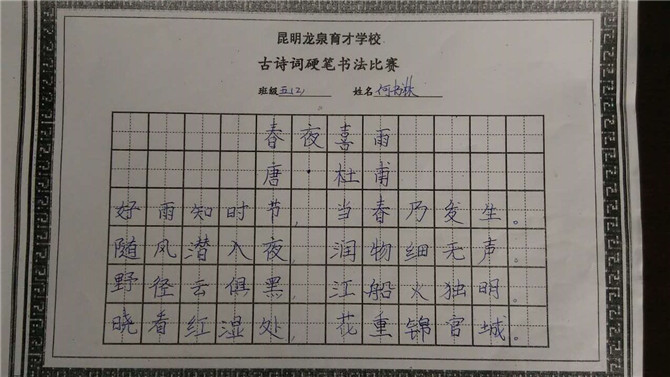 昆明龙泉育才学校
古诗词硬笔书法比赛
班级 五(2) 姓名 何
春夜喜雨
唐·杜甫
好雨知时节，当春乃发生。
随风潜入夜，润物细无声。
野径云俱黑，江船火独明。
晓看红湿处，花重锦官城。